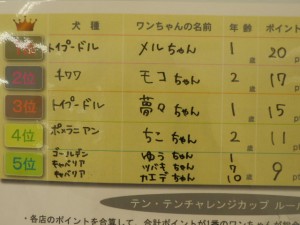 犬 種 ワンちゃんの名前 年 齢 ポイント
トイプードル メルちゃん 1才 20 pt
2位 チワワ モコちゃん 2才 17
3位 トイプードル 夢々ちゃん 1才 15
4位 ポメラニアン ちこちゃん 2才 11 p
5位 ゴールデン ゆうちゃん 1
キャバリア ツバキちゃん 7才 9 pt
キャバリア カエデちゃん 10
テン・テンチャレンジカップ ルール
・各店のポイントを合算して、合計ポイントが1番のワンちゃんが